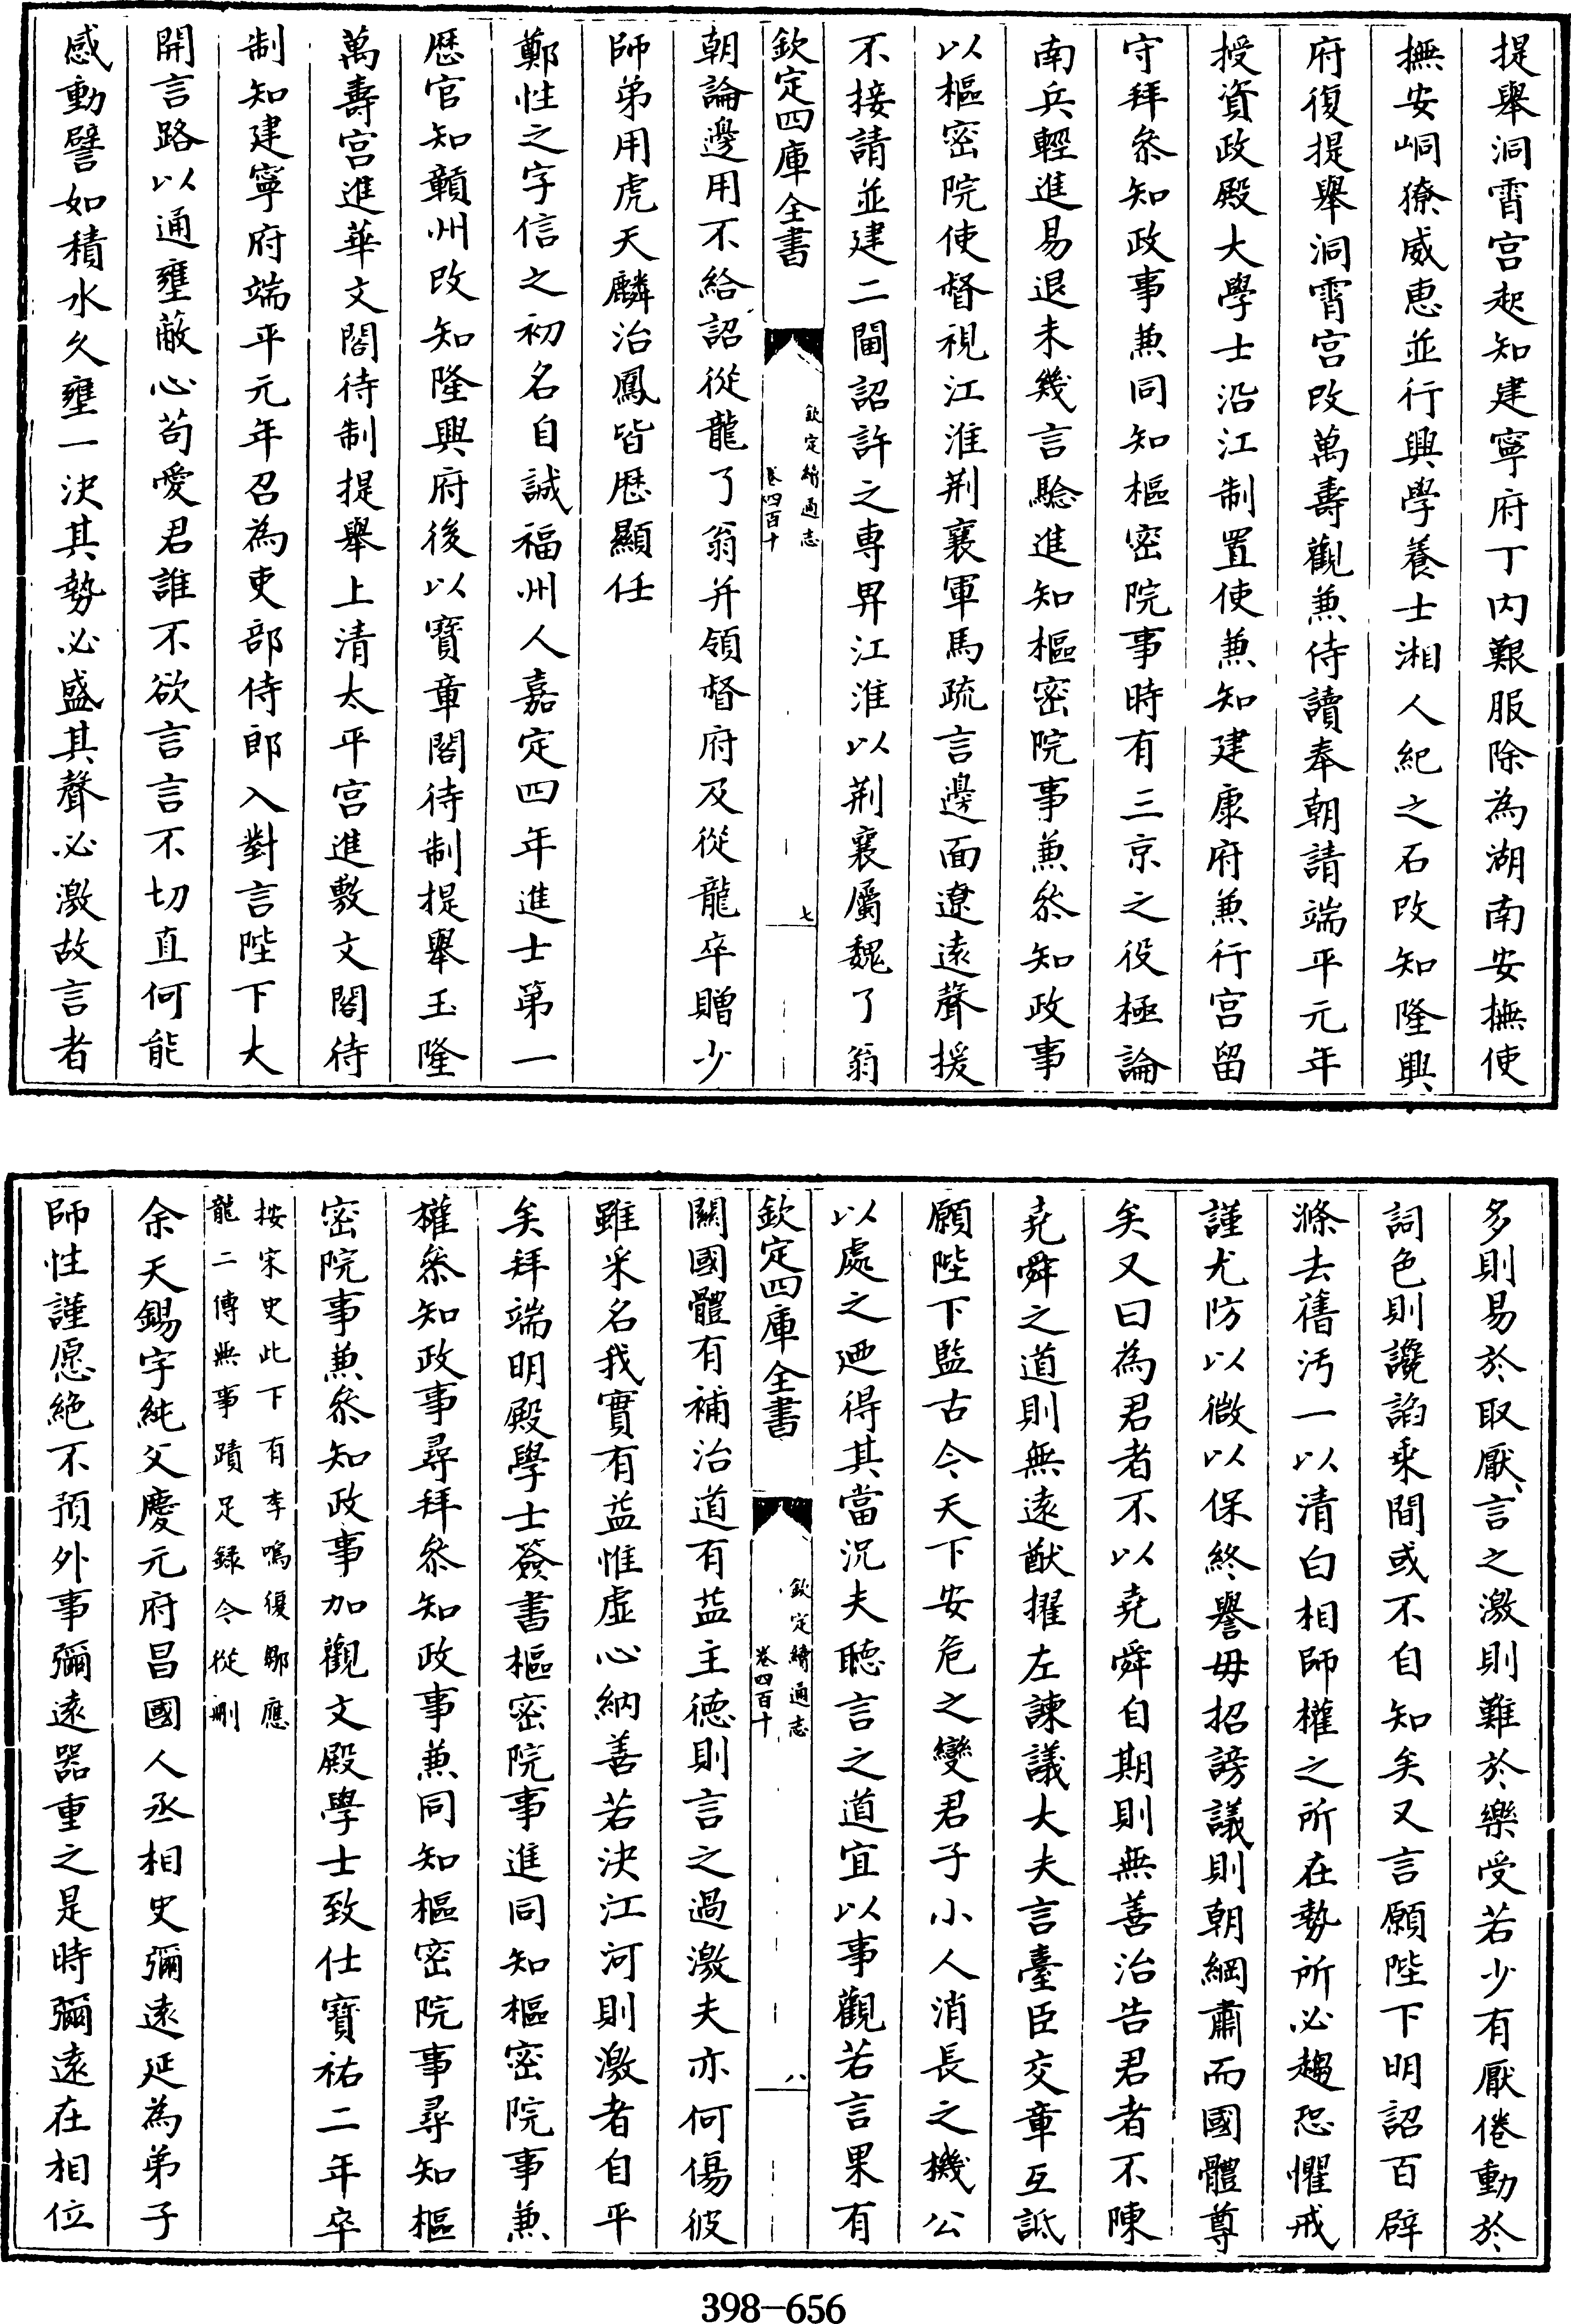 提舉洞霄宮起知建寧府丁内艱服除為湖南安撫使
撫安峒獠威恵並行興學養士湘人紀之石改知隆興
府復提舉洞霄宮改萬壽觀兼侍讀奉朝請端平元年
授資政殿大學士沿江制置使兼知建康府兼行宮留
守拜叅知政事兼同知樞密院事時有三京之役極論
南兵輕進易退未幾言驗進知樞密院事兼叅知政事
以樞密院使督視江淮荆襄軍馬疏言邊面遼遠聲援
不接請並建二閫詔許之専畀江淮以荆襄屬魏了翁
欽定四庫全書
欽定續通志
卷四百十
七
朝論邊用不給詔從龍了翁并領督府及從龍卒贈少
師弟用虎天麟治鳳皆歴顯任
鄭性之字信之初名自誠福州人嘉定四年進士第一
歴官知贛州改知隆興府後以寶章閣待制提舉玉隆
萬壽宮進華文閣待制提舉上清太平宮進敷文閣待
制知建寧府端平元年召為吏部侍郎入對言陛下大
開言路以通壅蔽心茍愛君誰不欲言言不切直何能
感動譬如積水久壅一決其勢必盛其聲必激故言者
多則易於取厭言之激則難於樂受若少有厭倦動於
詞色則讒謟乗間或不自知矣又言願陛下明詔百辟
滌去舊汚一以清白相師權之所在勢所必趨恐懼戒
謹尤防以微以保終譽毋招謗議則朝綱肅而國體尊
矣又曰為君者不以堯舜自期則無善治告君者不陳
堯舜之道則無遠猷擢左諫議大夫言臺臣交章互詆
願陛下監古今天下安危之變君子小人消長之機公
以處之廼得其當況夫聽言之道宜以事觀若言果有
欽定四庫全書
欽定續通志
卷四百十
八
關國體有補治道有益主德則言之過激夫亦何傷彼
雖釆名我實有益惟虛心納善若決江河則激者自平
矣拜端明殿學士簽書樞密院事進同知樞密院事兼
權叅知政事尋拜叅知政事兼同知樞密院事尋知樞
密院事兼叅知政事加觀文殿學士致仕寶祐二年卒
按宋史此下有李鳴復鄒應
龍二傳無事蹟足録今從刪
余天錫字純父慶元府昌國人丞相史彌遠延為弟子
師性謹愿絶不預外事彌遠器重之是時彌遠在相位
398-656